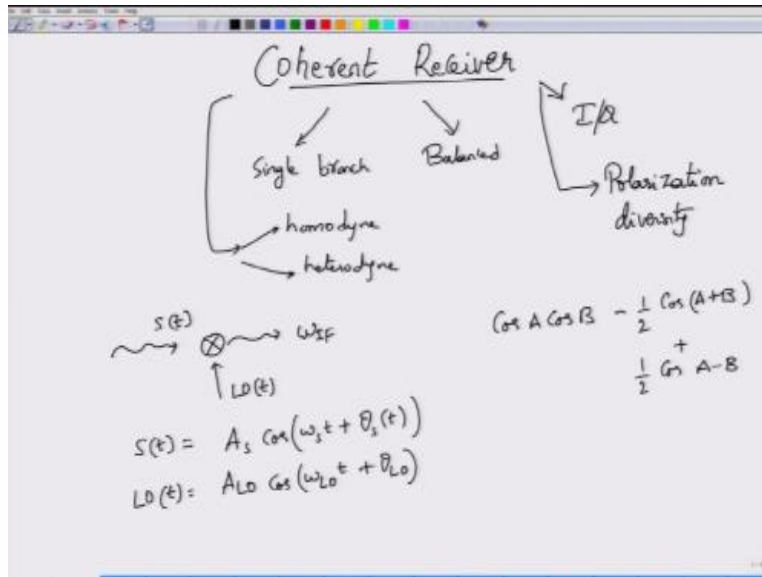 Coherent Receiver
I/Q
Single branch
Balanced
Polarization
diversity
homodyne
heterodyne
S(t)
ω_IF
LO(t)
Cos A Cos B - 1/2 Cos (A+B)
+
1/2 Cos A-B
S(t) = A_s Cos(ω_s t + θ_s(t))
LO(t) = A_LO Cos(ω_LO t + θ_LO)